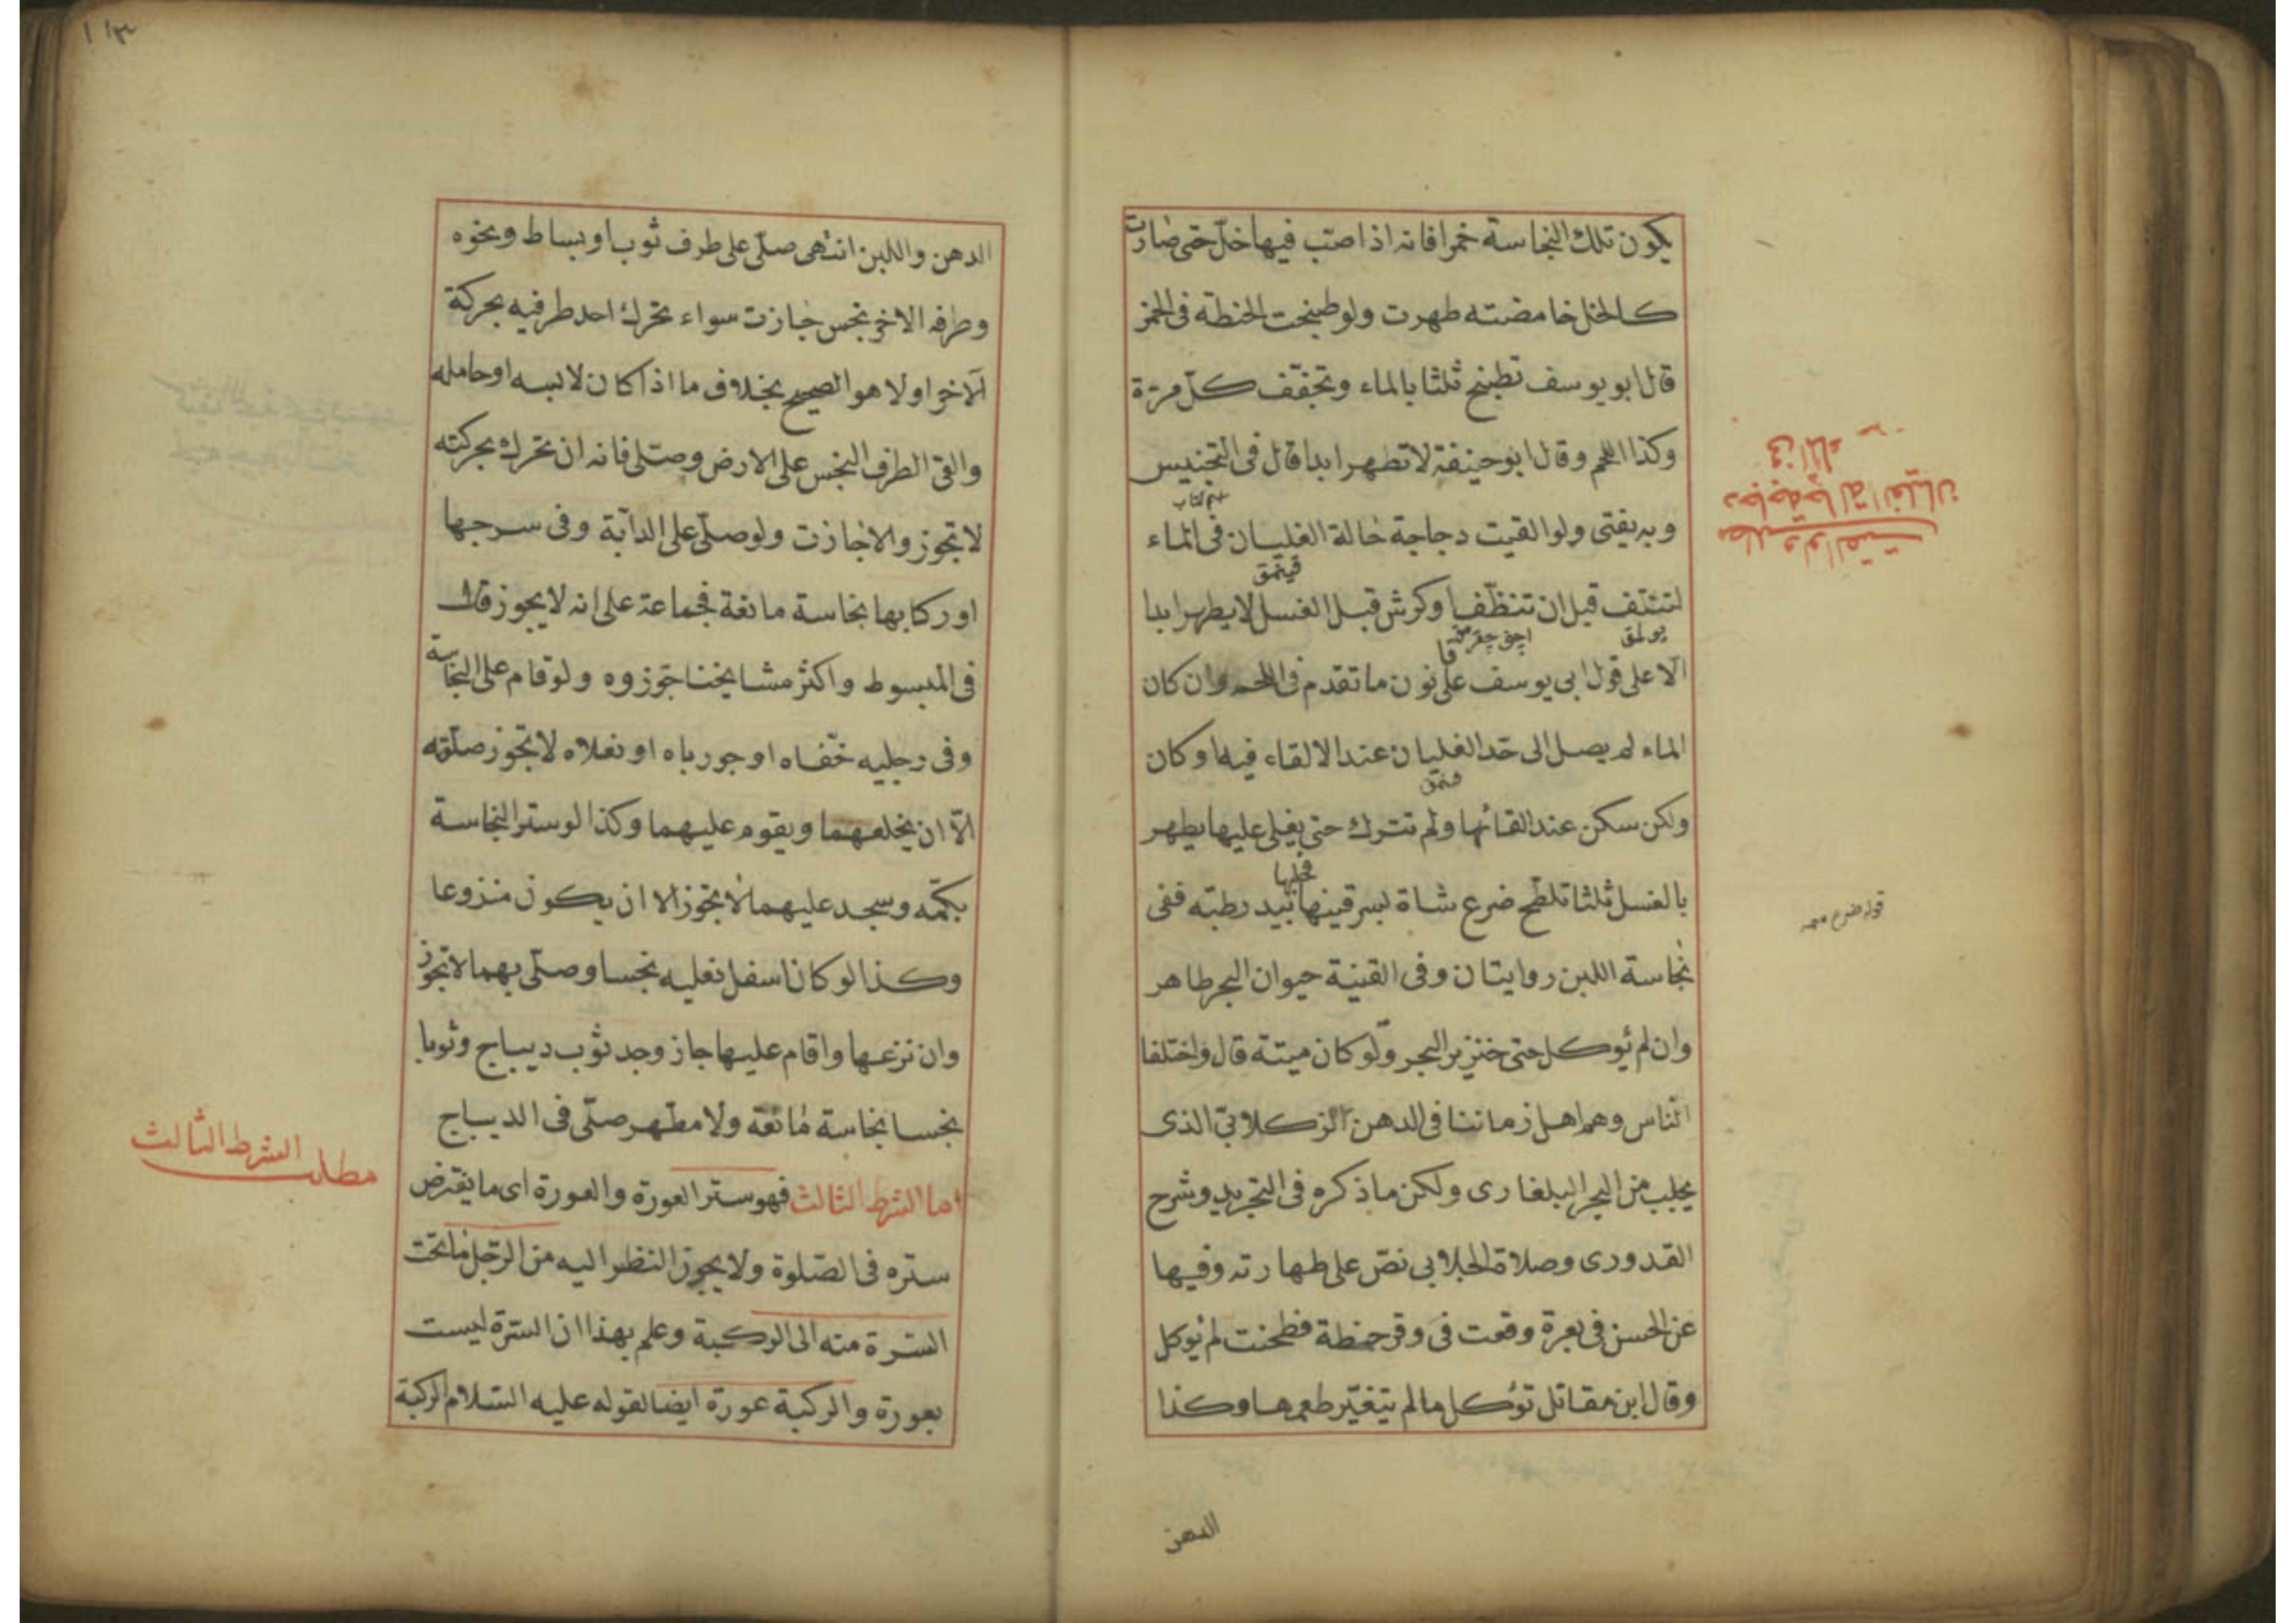 يكون تلك النجاسة خمرا فانه اذا صب فيها خل حتى صارت
كالخل خامضته طهرت ولو طبخت الحنطة فى الخمر
قال ابو يوسف تطبخ ثلثا بالماء وتجفف كل مرة
وكذا اللحم وقال ابو حنيفة لا تطهر ابدا قال فى التجنيس
اسم كتاب
وبه يفتى ولو القيت دجاجة حالة الغليان فى الماء
لتنتف قبل ان تنظف او كرش قبل الغسل لا يطهر ابدا
يولمق
الا على قول ابى يوسف على قانون ما تقدم فى اللحم وان كان
الماء لم يصل الى حد الغليان عند الالقاء فيها وكان
ولكن سكن عند القائها ولم تترك حتى يغلى عليها يطهر
بالغسل ثلثا تلطخ ضرع شاة بسرقينها فحلبها بيد رطبة ففى
نجاسة اللبن روايتان وفى القنية حيوان البحر طاهر
وان لم يؤكل حتى خنزير البحر ولو كان ميتة قال واختلفا
الناس وهم اهل زماننا فى الدهن الزكلابى الذى
يجلب من البحر البلغارى ولكن ما ذكره فى التجريد وشرح
القدورى وصلاة الجلابى نص على طهارته وفيها
عن الحسن فى بعرة وقعت فى وقر حنطة فطحنت لم يؤكل
وقال ابن مقاتل تؤكل ما لم يتغير طعمها وكذا
الدهن
مطلب ولو القيت
دجاجة حالة الغليان
فى الماء
قوله ضرع
الدهن واللبن انتهى صلى على طرف ثوب او بساط ونحوه
وطرفه الاخر نجس جازت سواء تحرك احد طرفيه بحركة
الاخر او لا هو الصحيح بخلاف ما اذا كان لابسه او حامله
والقى الطرف النجس على الارض وصلى فانه ان تحرك بحركته
لا تجوز والا جازت ولو صلى على الدابة وفى سرجها
او ركابها نجاسة مانعة فجماعة على انه لا يجوز قال
فى المبسوط واكثر مشايخنا جوزوه ولو قام على النجاسة
وفى رجليه خفاه او جورباه او نعلاه لا تجوز صلوته
الا ان يخلعهما ويقوم عليهما وكذا لو ستر النجاسة
بكمه وسجد عليهما لا تجوز الا ان يكون منزوعا
وكذا لو كان اسفل نعليه نجسا وصلى بهما لا تجوز
وان نزعها واقام عليها جاز وجد ثوب ديباج وثوبا
نجسا نجاسة مانعة ولا مطهر صلى فى الديباج
اما الشرط الثالث فهو ستر العورة والعورة اى ما يفترض
ستره فى الصلوة ولا يجوز النظر اليه من الرجل ما تحت
السرة منه الى الركبة وعلم بهذا ان السرة ليست
بعورة والركبة عورة ايضا لقوله عليه السلام الركبة
مطلب الشرط الثالث